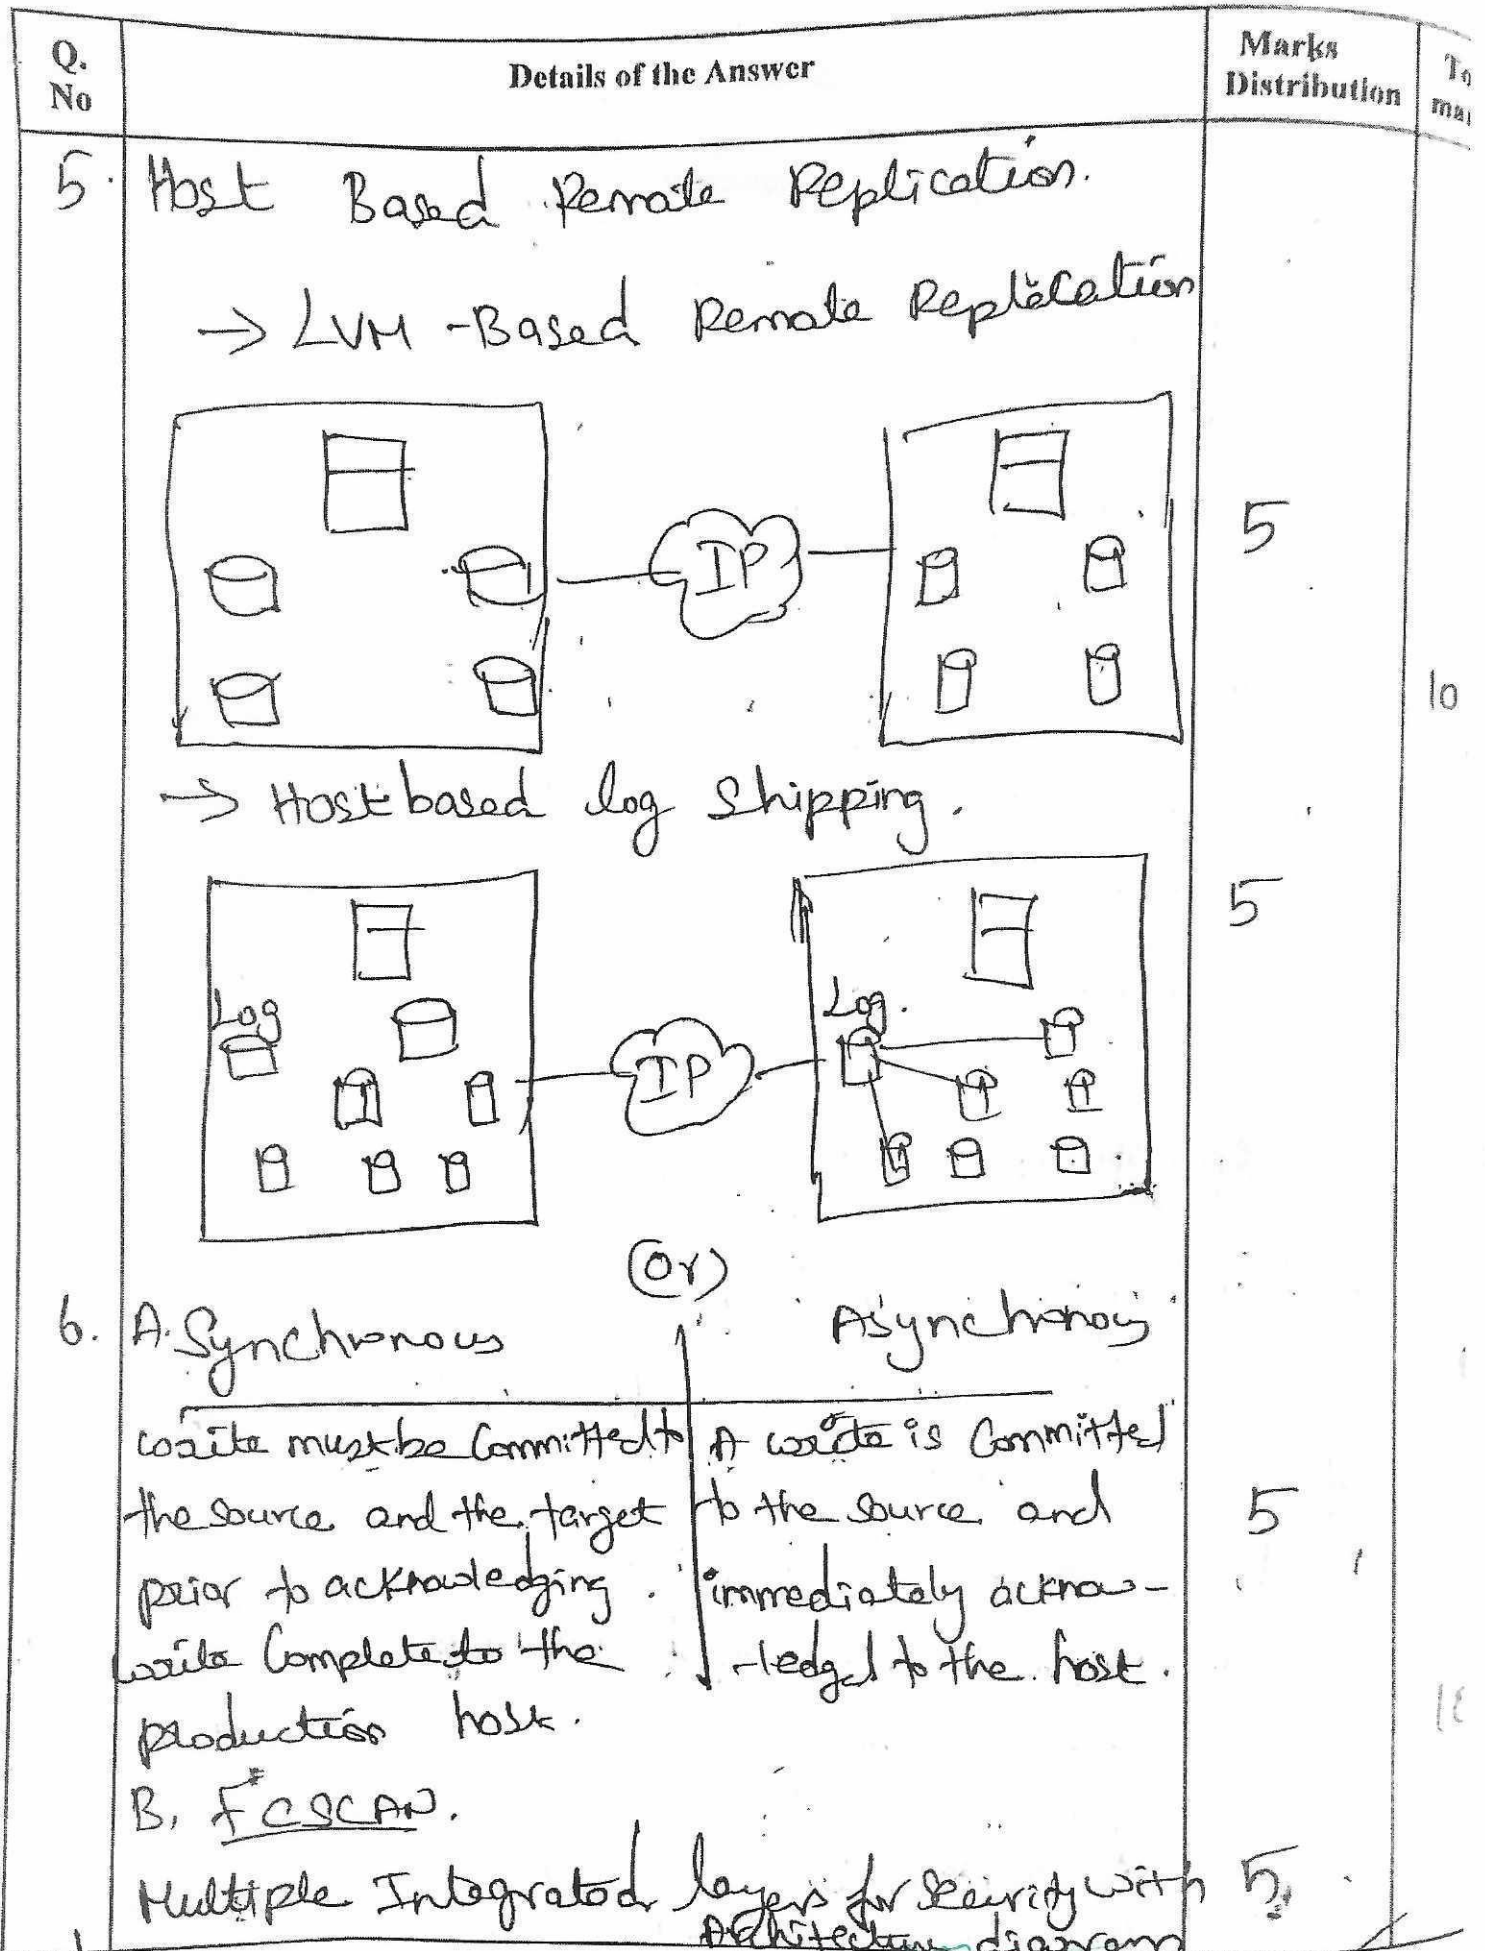 Q.
No
Details of the Answer
Marks
Distribution
5. Host Based Remote Replication.
→ LVM -Based Remote Replication
IP
5
10
→ Host based log Shipping.
5
Log
IP
Log.
(Or)
6. A. Synchronous
Asynchronous
write must be Committed to
the source and the target
prior to acknowledging
write Complete to the
production host.
A write is Committed
to the source and
immediately acknow-
-ledged to the host.
5
B. FCSCAN.
Multiple Integrated layers for Security with
Architecture diagram
5